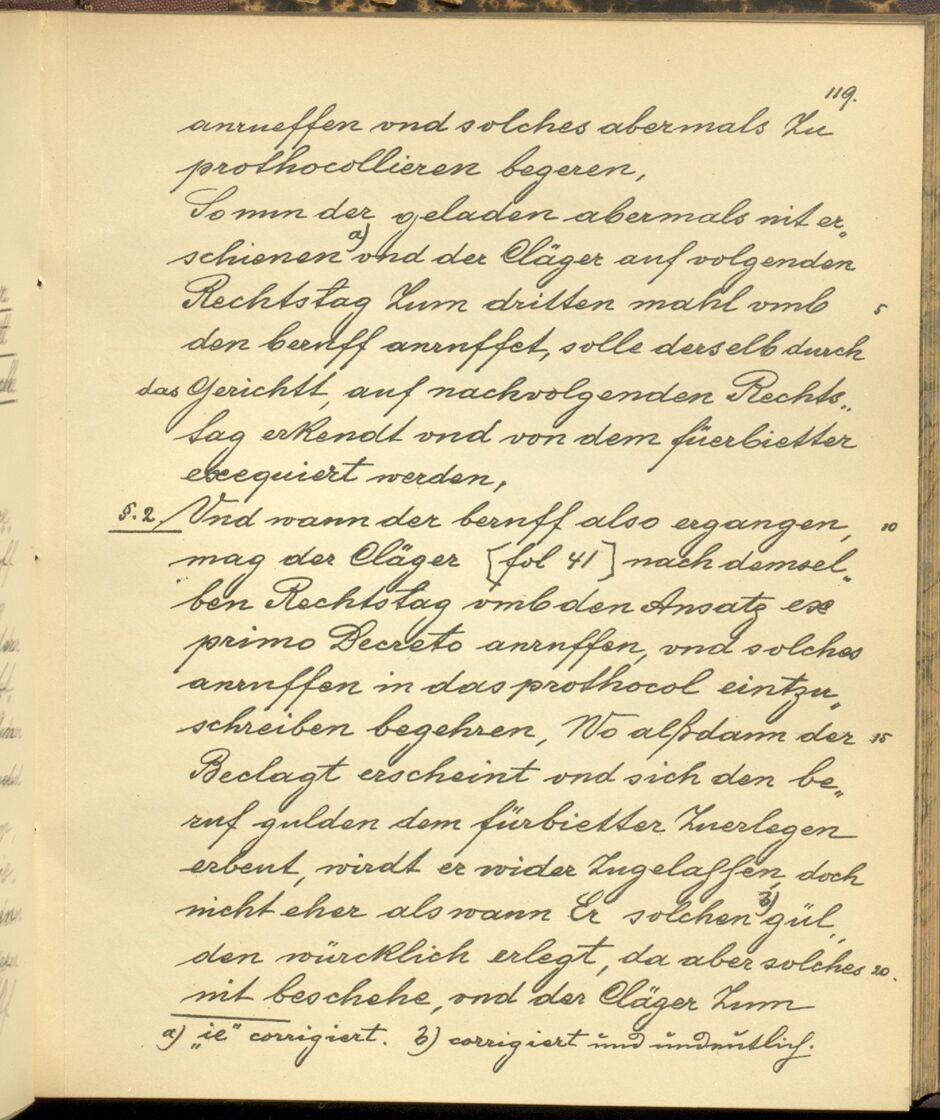 119.
anrueffen vnd solches abermals Zu
prothocollieren begeren,
So nun der geladen abermals nit er„
schienen a) vnd der Cläger auf volgenden
Rechtstag Zum dritten mahl vmb 5
den beruff anruffet, solle derselb durch
das Gerichtt, auf nachvolgenden Rechts„
tag erkendt vnd von dem füerbietter
exequiert werden,
§. 2. Vnd wann der beruff also ergangen, 10
mag der Cläger [fol 41] nach demsel„
ben Rechtstag vmb den Ansatz ex
primo Decreto anruffen, vnd solches
anruffen in das prothocol eintzu„
schreiben begehren, Wo alßdann der 15
Beclagt erscheint vnd sich den be„
ruf gulden dem fürbietter Zuerlegen
erbeut, wirdt er wider Zugelassen, doch
nicht eher als wann Er solchen b) gül„
den würcklich erlegt, da aber solches 20.
nit beschehe, vnd der Cläger Zum
a) „ie" corrigiert. b) corrigiert und undeutlich.